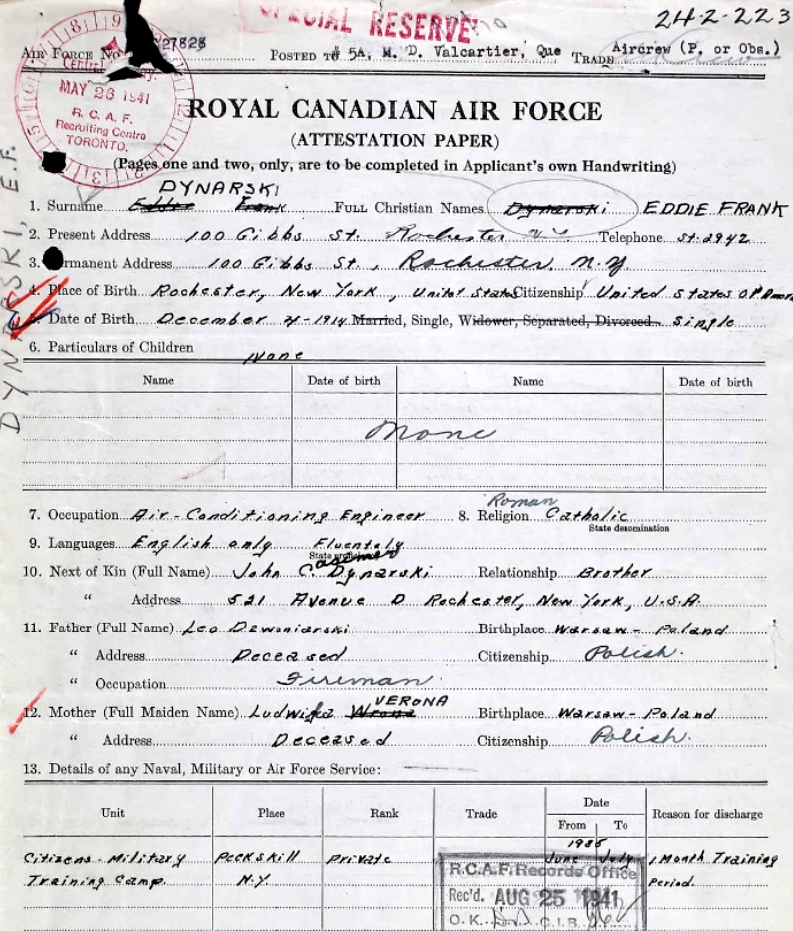 SPECIAL RESERVE
24-2-223
AIR FORCE No 27828 POSTED TO # 5A, M. D. Valcartier, Que TRADE Aircrew (P. or Obs.)
MAY 26 1941
R. C. A. F.
Recruiting Centre
TORONTO.
DYNARSKI, E.F.
ROYAL CANADIAN AIR FORCE
(ATTESTATION PAPER)
(Pages one and two, only, are to be completed in Applicant's own Handwriting)
DYNARSKI
1. Surname Eddie Frank FULL Christian Names Dynarski EDDIE FRANK
2. Present Address 100 Gibbs St. Rochester N.Y. Telephone St. 2942
3. rmanent Address 100 Gibbs St., Rochester, N.Y
4. Place of Birth Rochester, New York, United States Citizenship United States Of Amer
5. Date of Birth December 21-1914 Married, Single, Widower, Separated, Divorced Single
6. Particulars of Children None
Name Date of birth Name Date of birth
None
7. Occupation Air-Conditioning Engineer 8. Religion Roman Catholic
State denomination
9. Languages English only Fluentely
State proficiency
10. Next of Kin (Full Name) John C. Casemer Dynarski Relationship Brother
" Address 521 Avenue D Rochester, New York, U.S.A.
11. Father (Full Name) Leo Dewoniarski Birthplace Warsaw-Poland
" Address Deceased Citizenship Polish.
" Occupation Fireman.
VERONA
12. Mother (Full Maiden Name) Ludwika Wrona Birthplace Warsaw-Poland
" Address Deceased Citizenship Polish.
13. Details of any Naval, Military or Air Force Service:
Unit Place Rank Trade Date From To Reason for discharge
1935
Citizens-Military Peekskill Private June July 1 Month Training
Training Camp. N.Y. Period.
R.C.A.F. Records Office
Rec'd. AUG 25 1941
O.K. C.I.B.